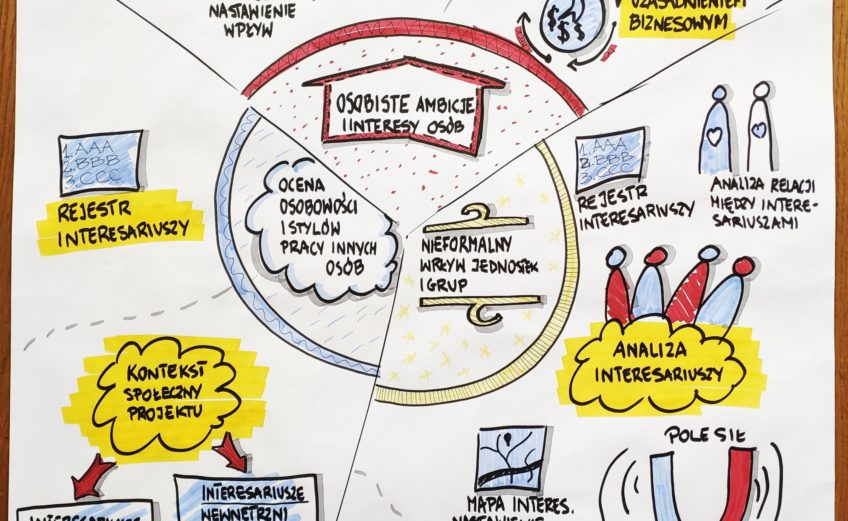 NASTAWIENIE
WPŁYW
UZASADNIENIEM
BIZNESOWYM
$ $
$ $
OSOBISTE AMBICJE
I INTERESY OSÓB
1. AAA
2. BBB
3. CCC
REJESTR
INTERESARIUSZY
OCENA
OSOBOWOŚCI
I STYLÓW
PRACY INNYCH
OSÓB
NIEFORMALNY
WPŁYW JEDNOSTEK
I GRUP
1. AAA
2. BBB
3. CCC
REJESTR
INTERESARIUSZY
ANALIZA RELACJI
MIĘDZY INTERE-
SARIUSZAMI
ANALIZA
INTERESARIUSZY
KONTEKST
SPOŁECZNY
PROJEKTU
INTERESARIUSZE
WEWNĘTRZNI
MAPA INTERES.
NASTAWIENIE
POLE SIŁ